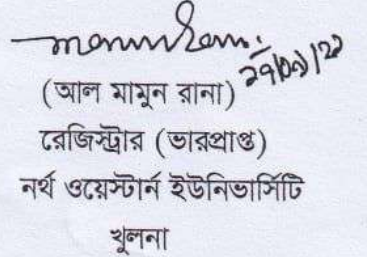 (আল মামুন রানা)
রেজিস্ট্রার (ভারপ্রাপ্ত)
নর্থ ওয়েস্টার্ন ইউনিভার্সিটি
খুলনা